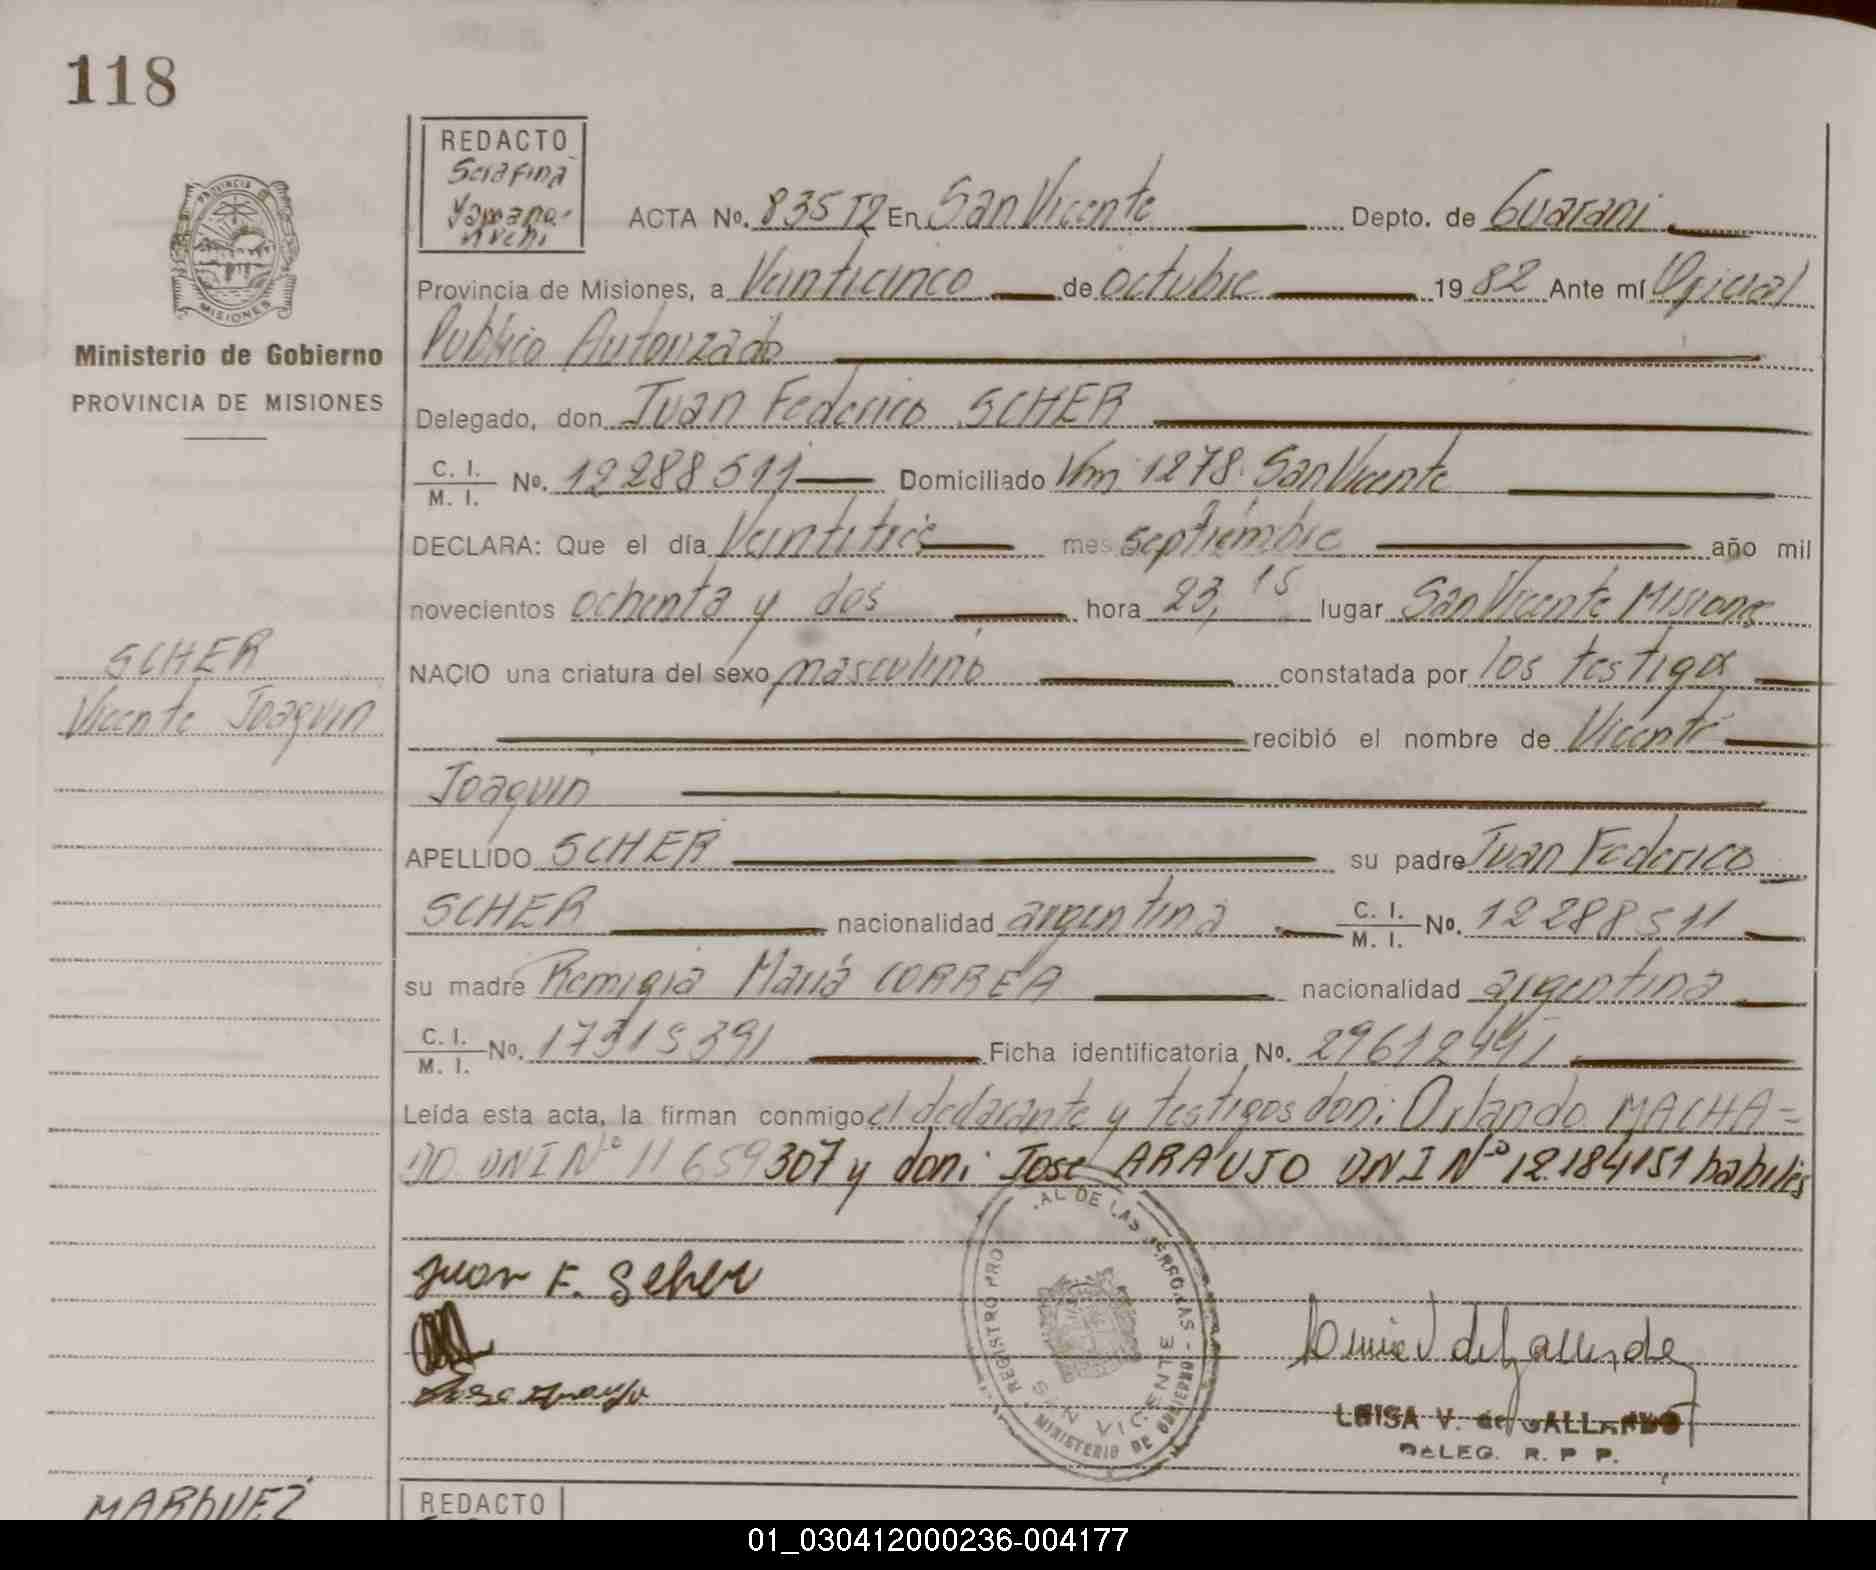 118
REDACTO
Serafina
ACTA No. 835 T2 En San Vicente Depto. de Guarani
Provincia de Misiones, a Veinticinco de octubre 1982 Ante mí Oficial
PROVINCIA DE
MISIONES
Ministerio de Gobierno
PROVINCIA DE MISIONES
Publico Autorizado
Delegado, don Juan Federico SCHER
C. I.
M. I. No. 12288511 Domiciliado Km 1278 San Vicente
DECLARA: Que el día Veintitres mes septiembre año mil
novecientos ochenta y dos hora 23,15 lugar San Vicente Misiones
SCHER
Vicente Joaquin
NACIO una criatura del sexo masculino constatada por los testigos
recibió el nombre de Vicente
Joaquin
APELLIDO SCHER su padre Juan Federico
SCHER nacionalidad argentina C. I. M. I. No. 12288511
su madre Remigia Maria CORREA nacionalidad argentina
C. I.
M. I. No. 17315391 Ficha identificatoria No. 29612441
Leída esta acta, la firman conmigo el declarante y testigos don: Orlando MACHA=
DO DNI Nº 11659307 y don: Jose ARAUJO DNI Nº 12.184151 habiles
Juan F. Scher
Jose Araujo
REGISTRO PRO AL DE LAS PERSONAS - MINISTERIO DE GOBIERNO
SAN VICENTE
Luisa V de Gallardo
LUISA V. de GALLARDO
DELEG. R. P. P.
MARQUEZ
REDACTO
01_030412000236-004177